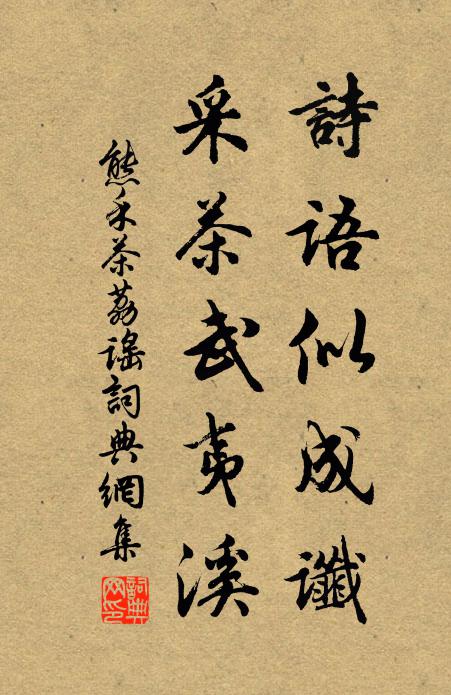 詩語似成讖
采茶武夷溪
熊禾茶荔謠詞典網集
詞典网印